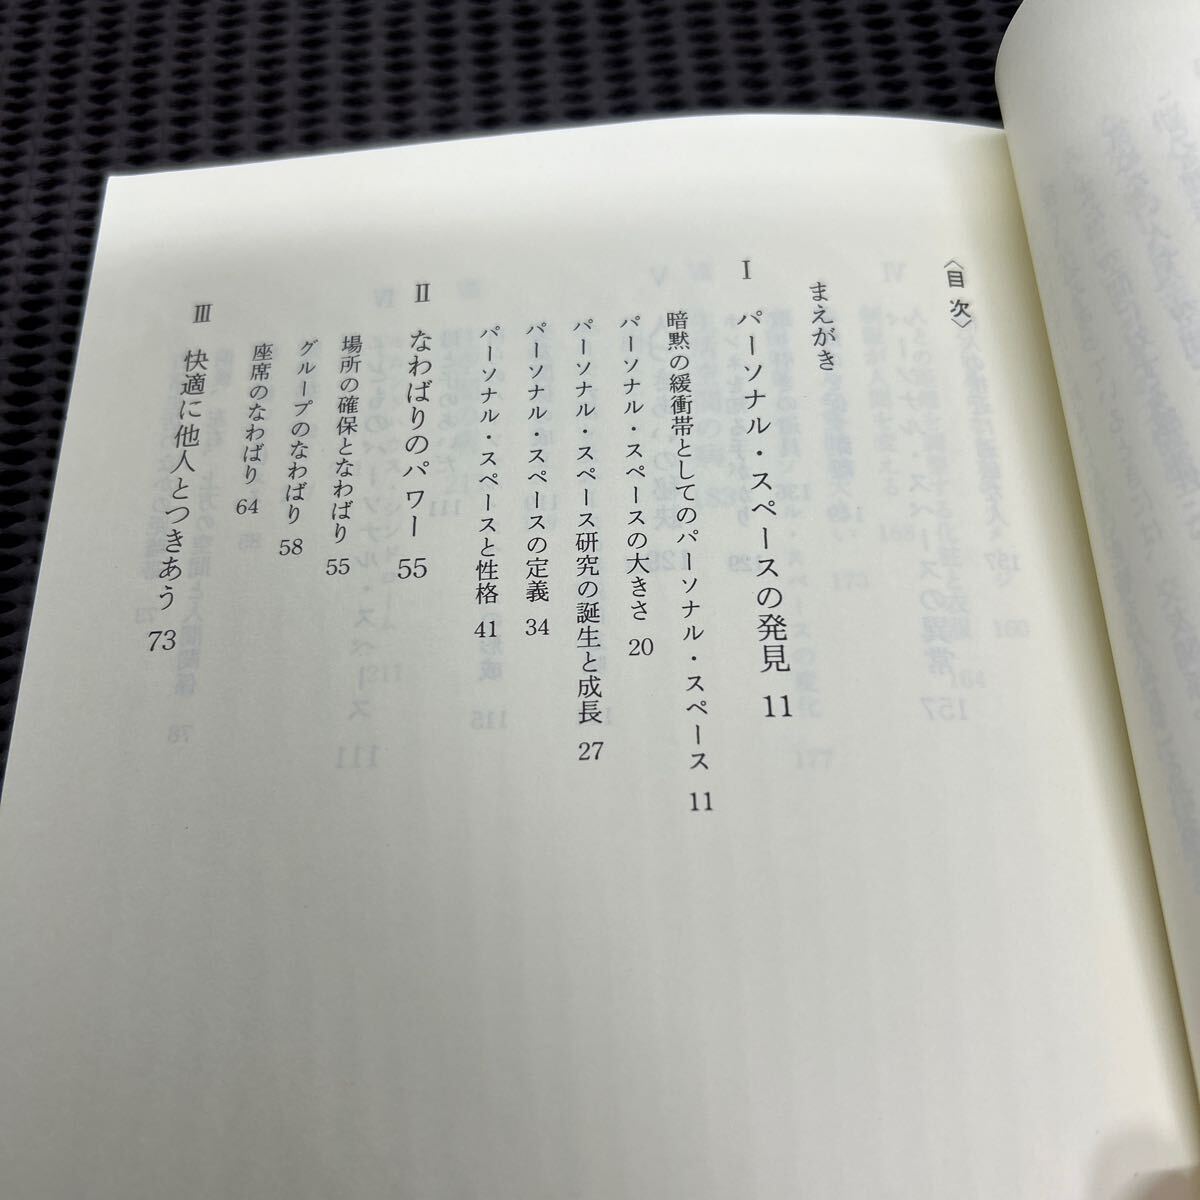 〈目次〉
まえがき
Ⅰ パーソナル・スペースの発見 11
暗黙の緩衝帯としてのパーソナル・スペース 11
パーソナル・スペースの大きさ 20
パーソナル・スペース研究の誕生と成長 27
パーソナル・スペースの定義 34
パーソナル・スペースと性格 41
Ⅱ なわばりのパワー 55
場所の確保となわばり 55
グループのなわばり 58
座席のなわばり 64
Ⅲ 快適に他人とつきあう 73